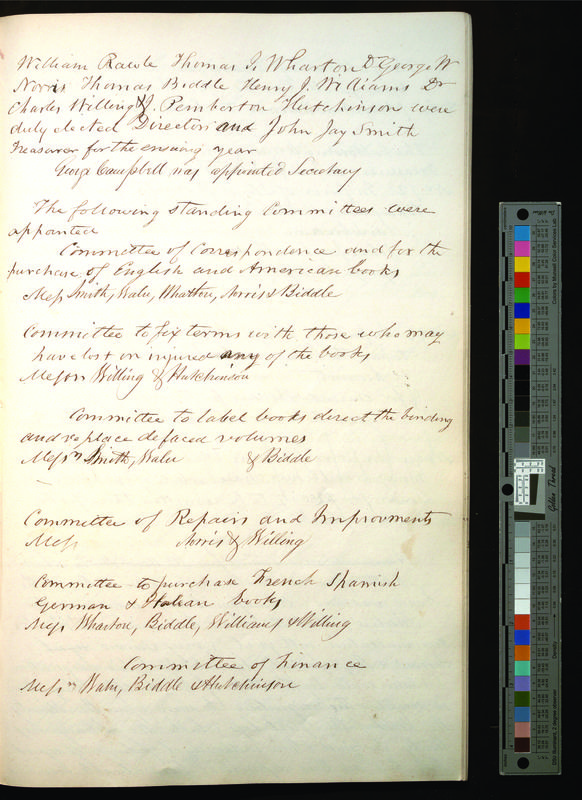 William Rawle Thomas I. Wharton Dr George W
Norris Thomas Biddle Henry J. Williams Dr
Charles Willing & J. Pemberton Hutchinson were
duly elected Directors and John Jay Smith
Treasurer for the ensuing year
George Campbell was appointed Secretary
The following standing Committees were
appointed
Committee of Correspondence and for the
purchase of English and American books
Mess Smith, Waln, Wharton, Norris & Biddle
Committee to fix terms with those who may
have lost or injured any of the books
Messrs Willing & Hutchinson
Committee to label books direct the binding
and replace defaced volumes
Messrs Smith, Waln & Biddle
Committee of Repairs and Improvments
Mess Norris & Willing
Committee to purchase French Spanish
German & Italian books
Mess Wharton, Biddle, Williams & Willing
Committee of Finance
Messrs Waln, Biddle & Hutchinson
Golden Thread